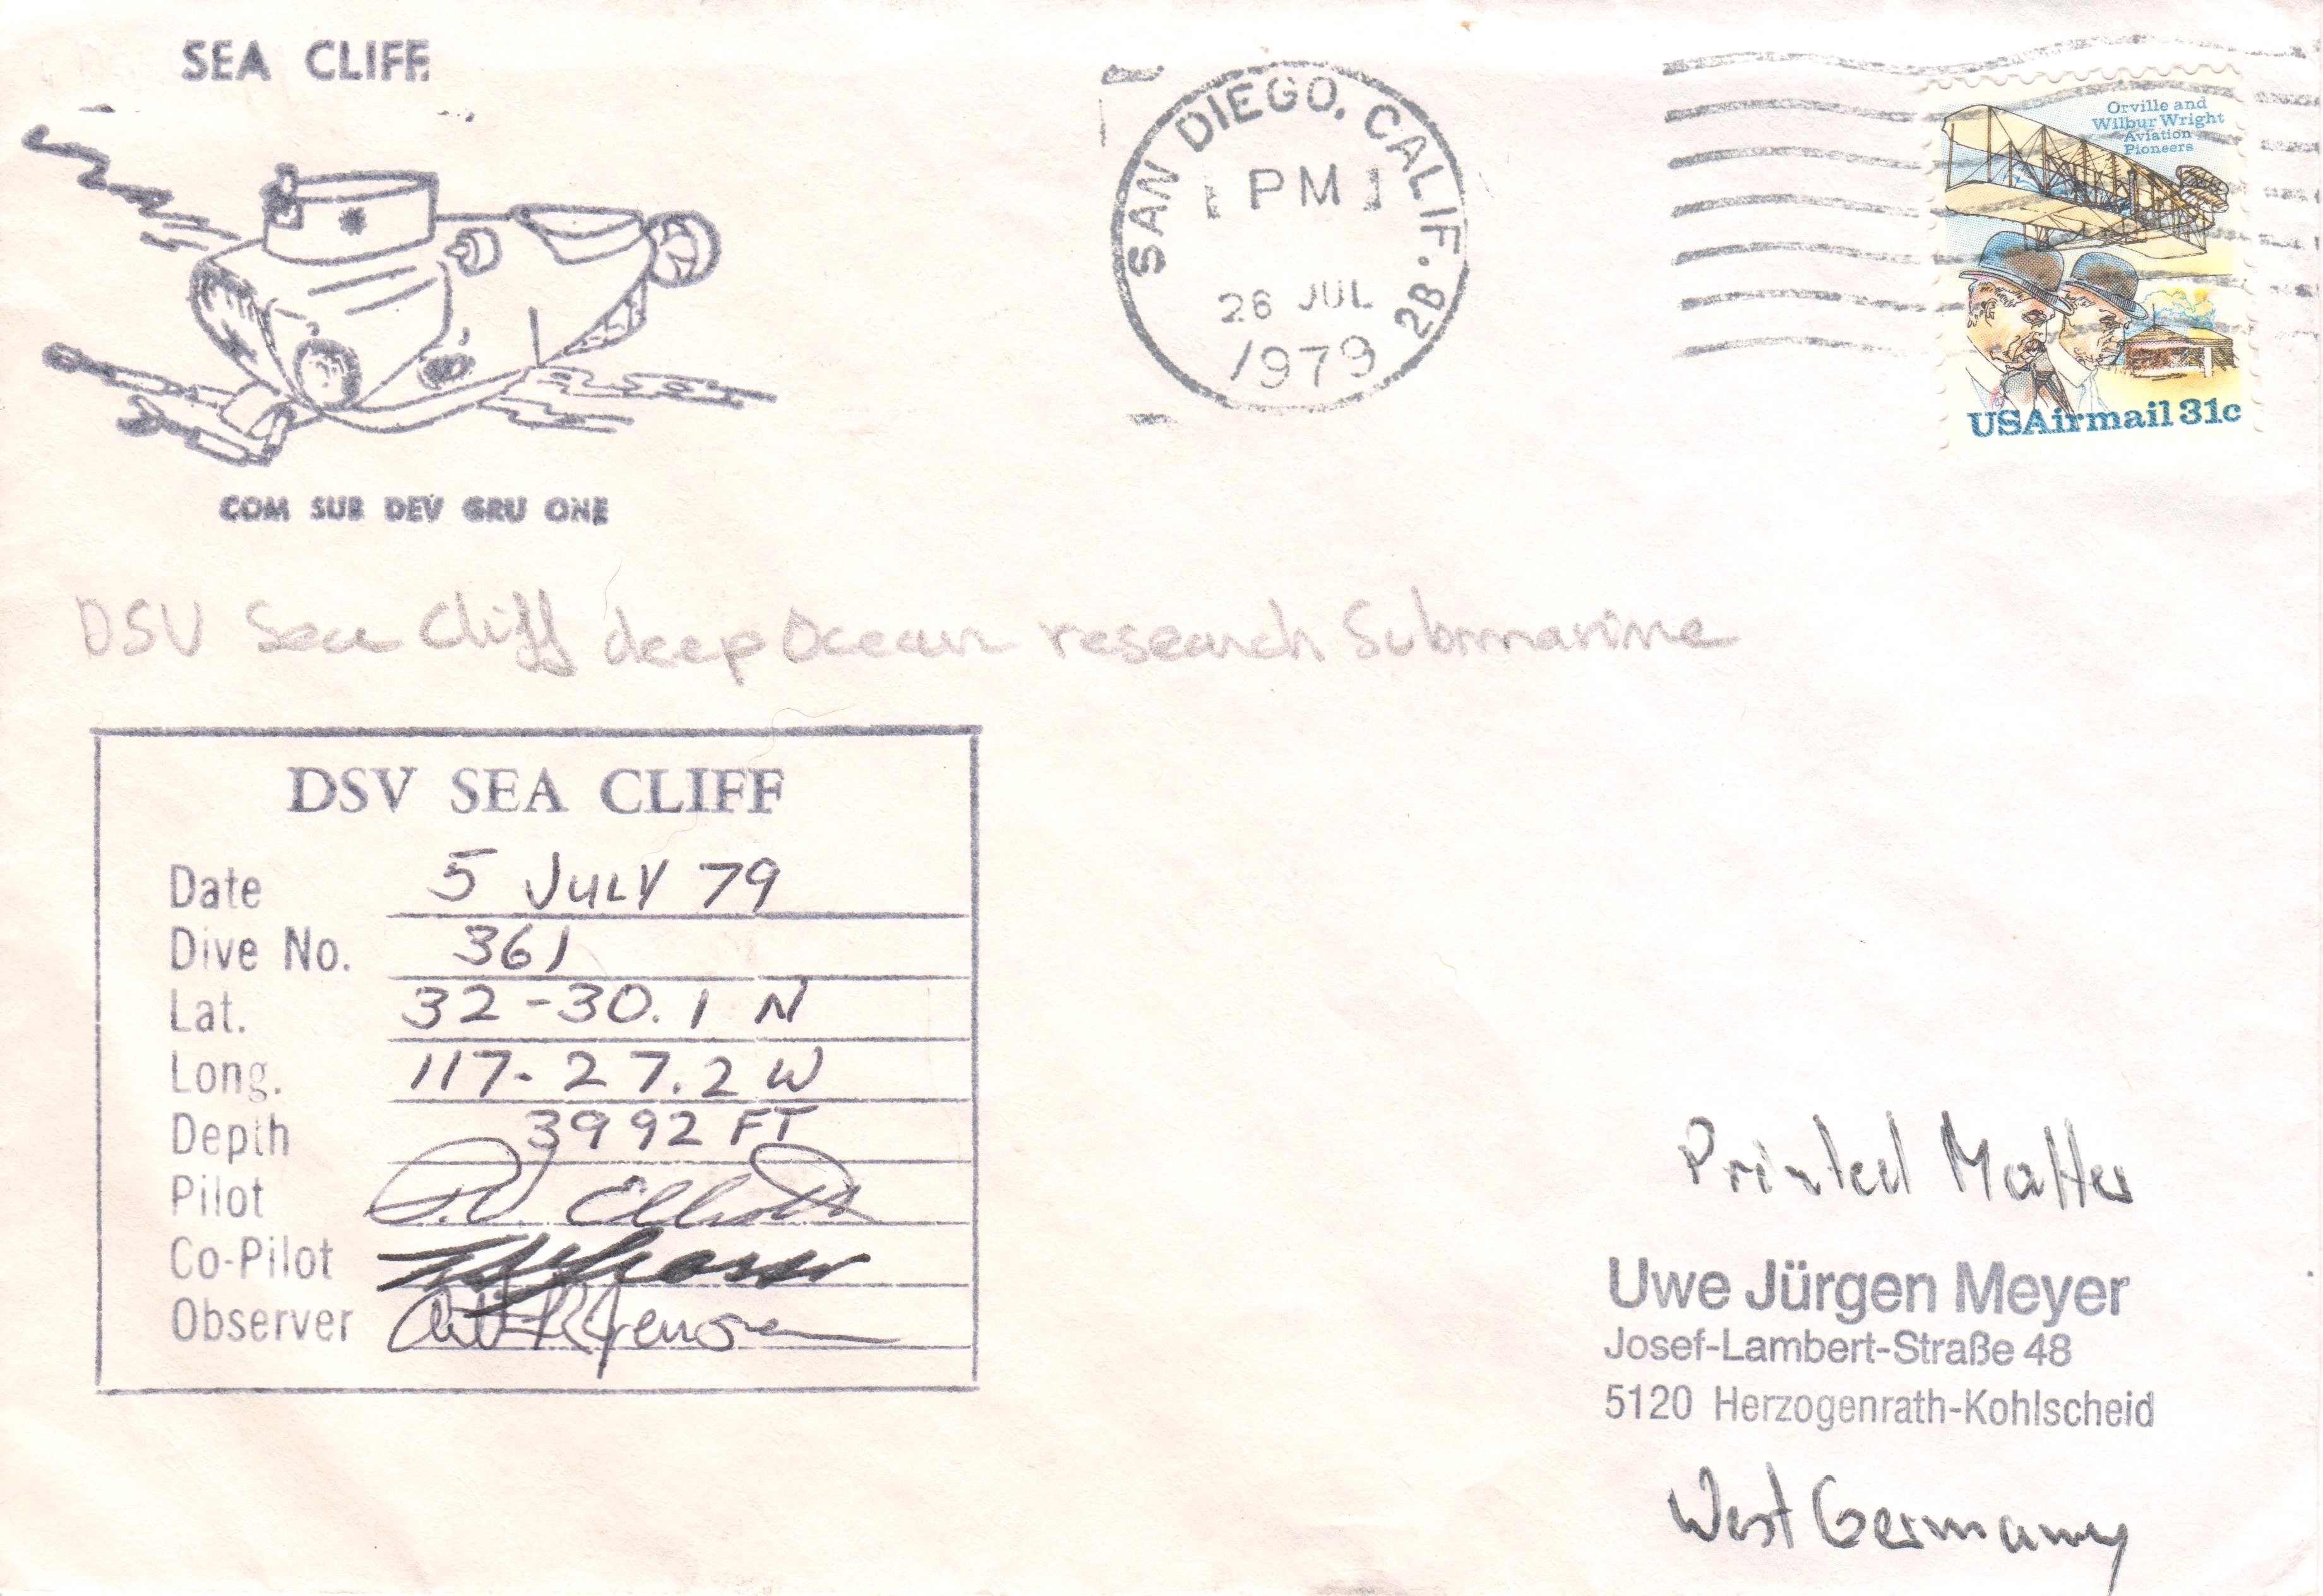 SEA CLIFF
SAN DIEGO, CALIF. 2B
PM
26 JUL
1979
Orville and
Wilbur Wright
Aviation
Pioneers
USAirmail 31c
COM SUB DEV GRU ONE
DSV Sea Cliff deep Ocean research Submarine
DSV SEA CLIFF
Date 5 JULY 79
Dive No. 361
Lat. 32-30.1 N
Long. 117-27.2 W
Depth 3992 FT
Pilot Elliott
Co-Pilot
Observer
Printed Matter
Uwe Jürgen Meyer
Josef-Lambert-Straße 48
5120 Herzogenrath-Kohlscheid
West Germany